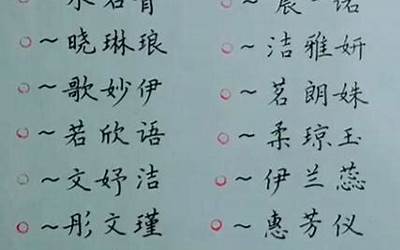 ~晓琳琅
~歌妙伊
~若欣语
~文妤洁
~彤文瑾
~晨一诺
~洁雅妍
~茗朗姝
~柔琼玉
~伊兰蕊
~惠芳仪